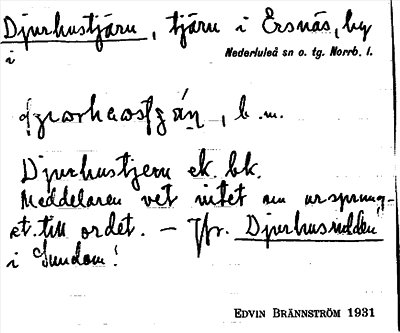 Djurhustjärn, tjärn i Ersnäs, by
i Nederluleå sn o. tg. Norrb. l.
b. m.
Djurhustjern ek. bk.
Meddelaren vet intet om ursprung-
et till ordet. – Jfr. Djurhusudden
i Sundom!
EDVIN BRÄNNSTRÖM 1931